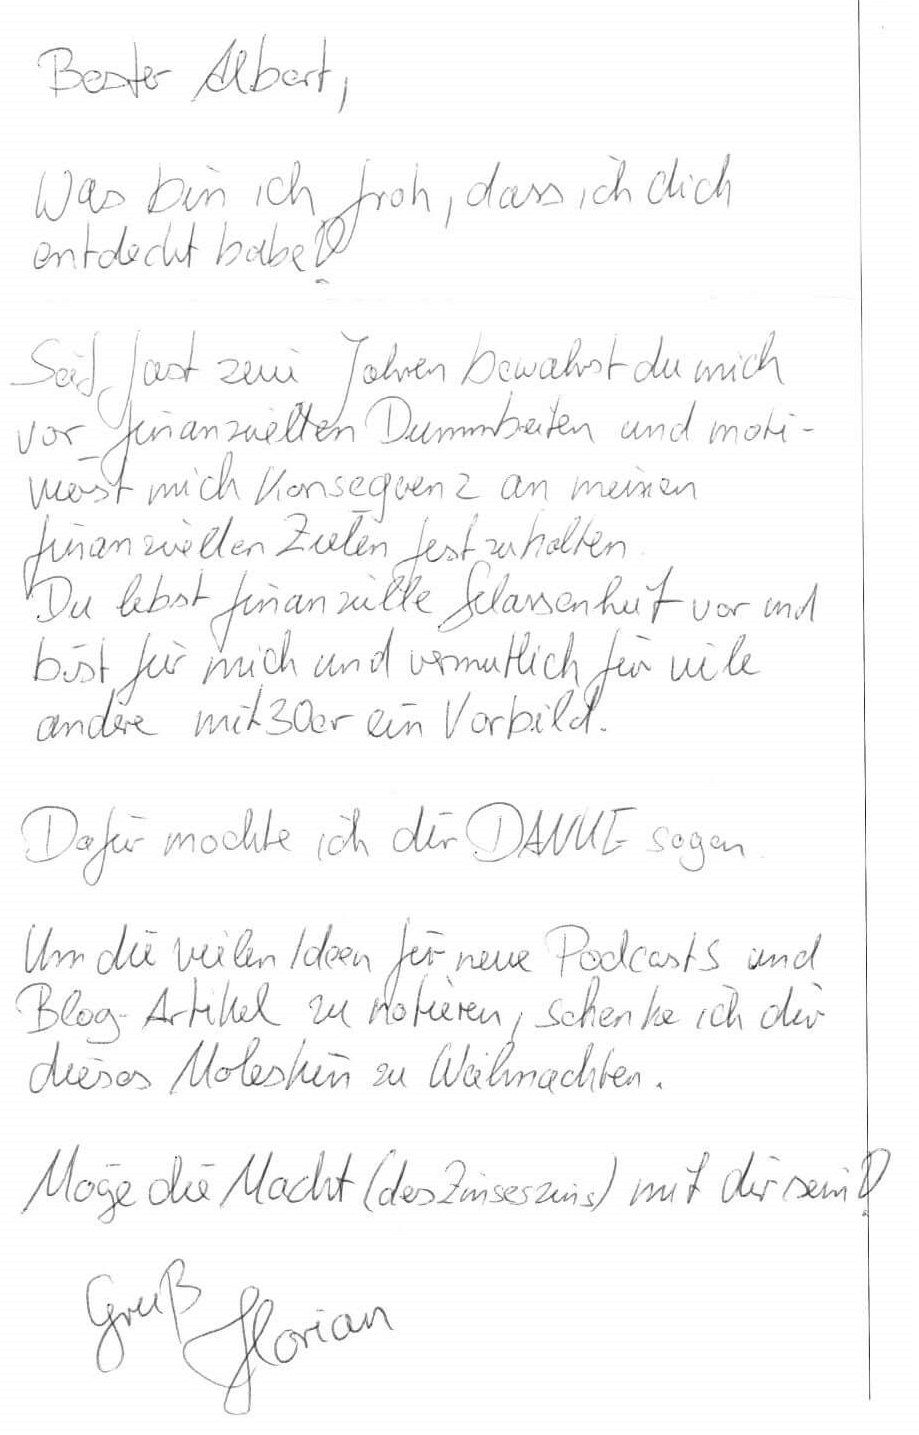 Bester Albert,
Was bin ich froh, dass ich dich
entdeckt habe!
Seit fast zwei Jahren bewahrst du mich
vor finanziellen Dummheiten und moti-
vierst mich Konsequenz an meinen
finanziellen Zielen festzuhalten.
Du lebst finanzielle Gelassenheit vor und
bist für mich und vermutlich für viele
andere mit 30er ein Vorbild.
Dafür möchte ich dir DANKE sagen.
Um die vielen Ideen für neue Podcasts und
Blog-Artikel zu notieren, schenke ich dir
dieses Moleskin zu Weihnachten.
Möge die Macht (des Zinseszins) mit dir sein!
Gruß
Florian